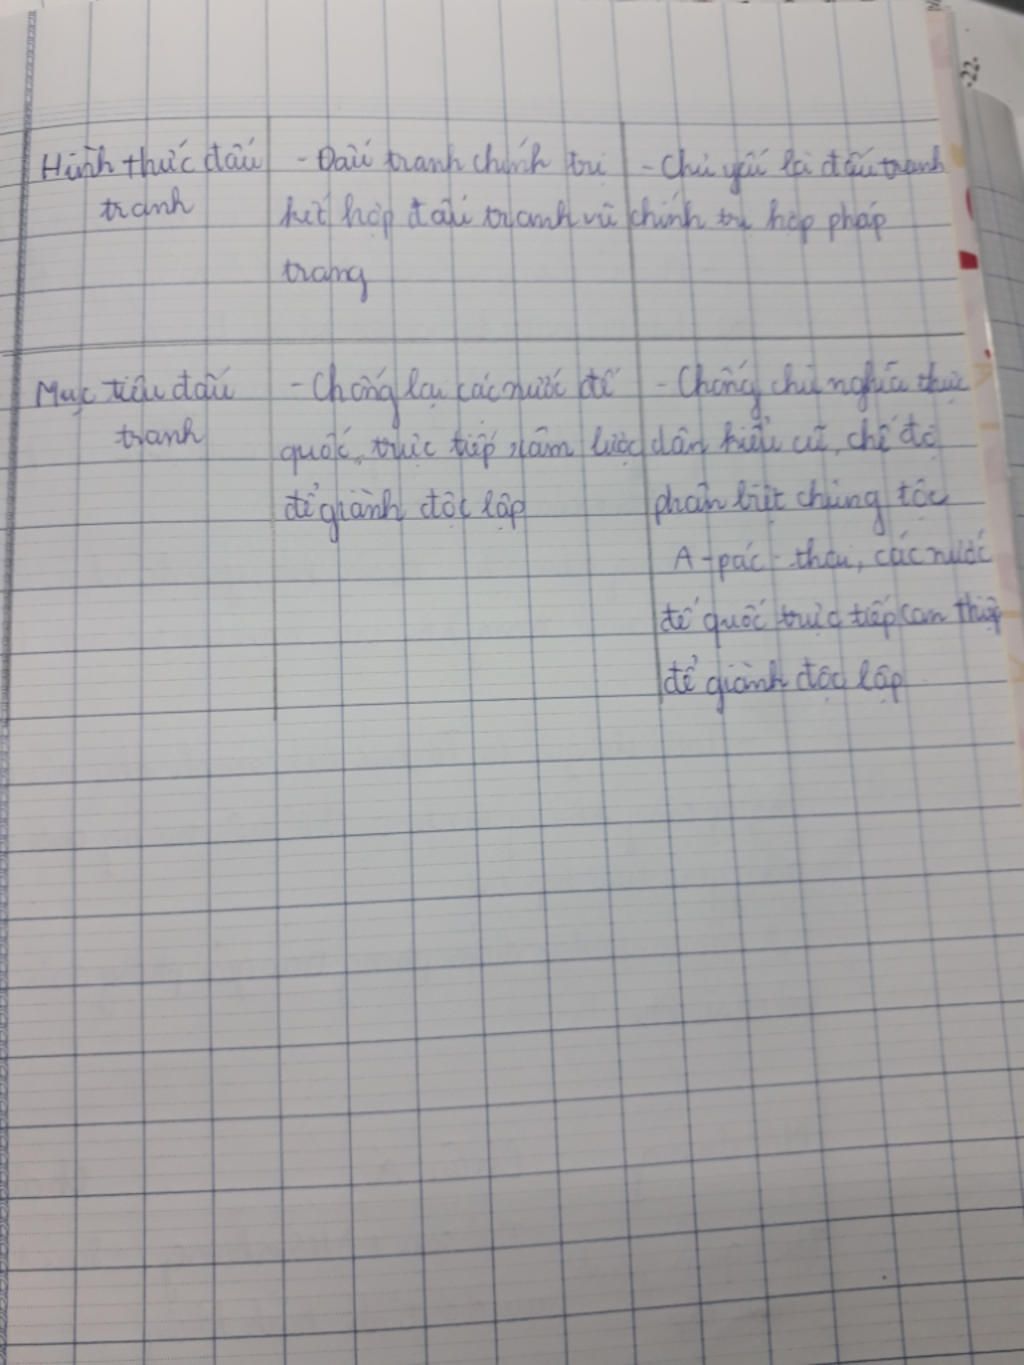 Hình thức đấu
tranh
- Đấu tranh chính trị
kết hợp đấu tranh vũ
trang
- Chủ yếu là đấu tranh
chính trị hợp pháp
Mục tiêu đấu
tranh
- Chống lại các nước đế
quốc, trực tiếp xâm lược
để giành độc lập
- Chống chủ nghĩa thực
dân kiểu cũ, chế độ
phân biệt chủng tộc
A-pác-thai, các nước
đế quốc trực tiếp can thiệp
để giành độc lập
22.